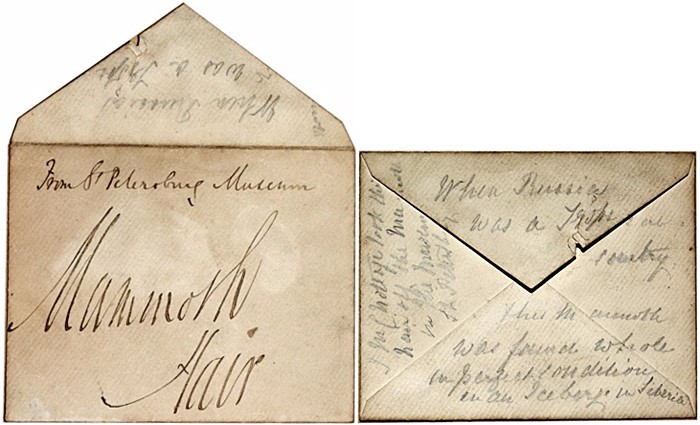 When Russia
was a
From St Petersburg Museum
Mammoth
Hair
When Russia
was a Tropical
country
This Mammoth
was found whole
in perfect condition
in an Iceberg in Siberia
took this
hair off the Mammoth
in the Museum